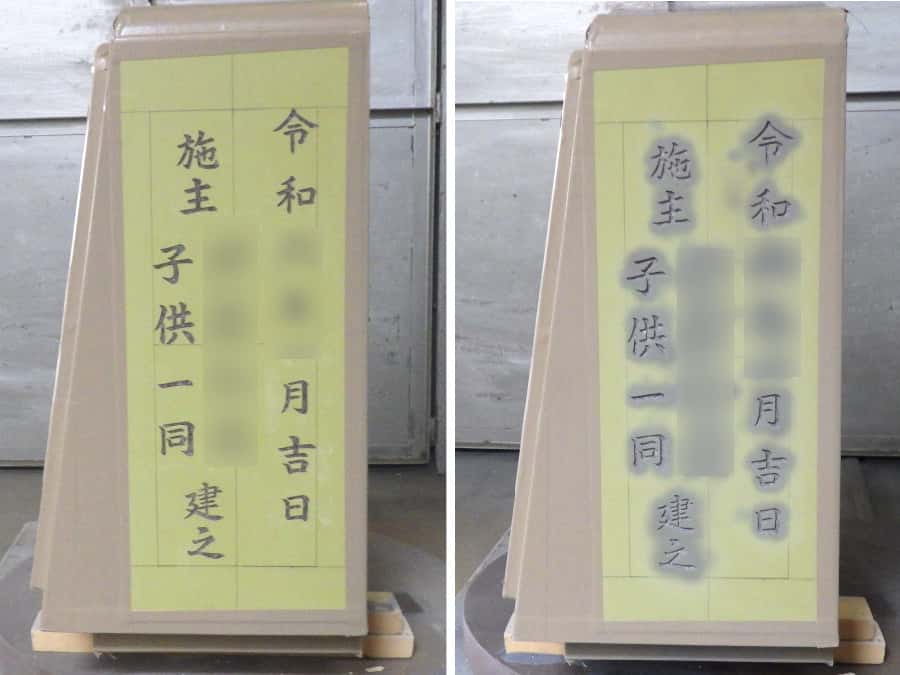 令和 月吉日
施主
子供一同
建之
令和 月吉日
施主
子供一同
建之